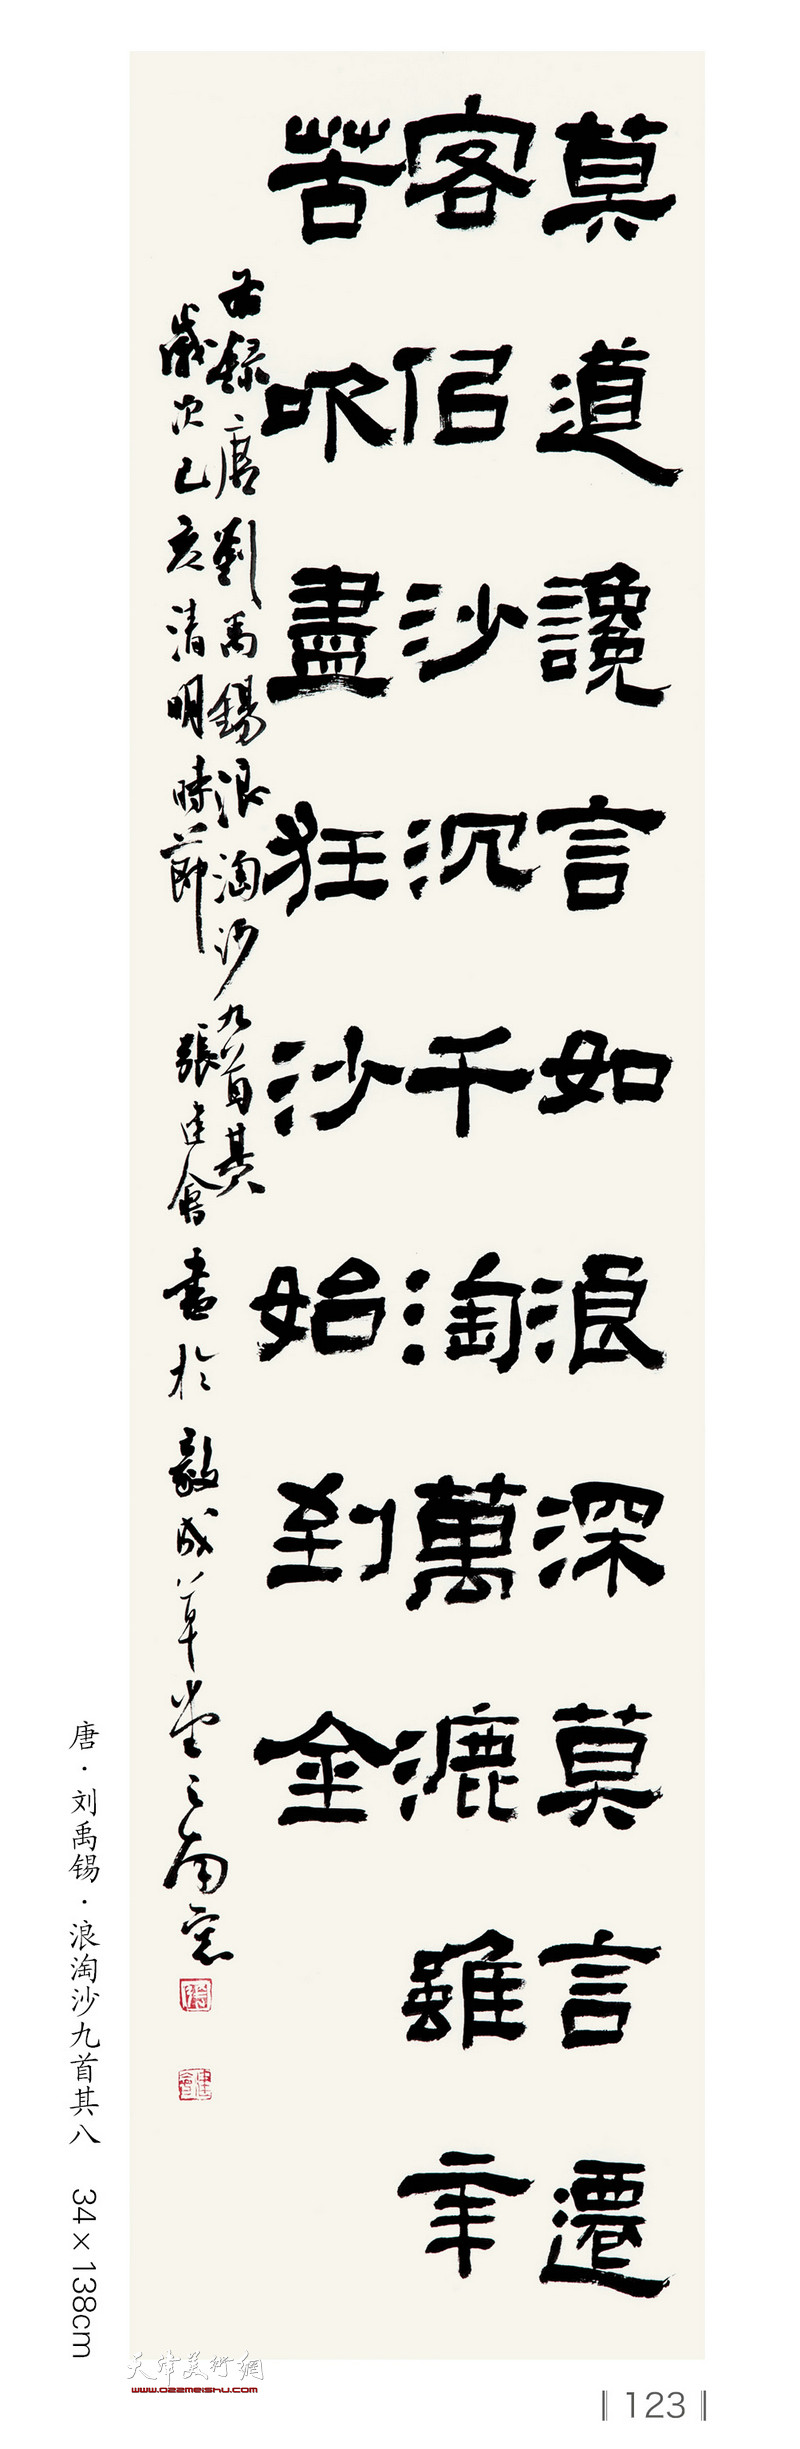 莫道讒言如浪深莫言遷
客侣沙沉千淘萬漉雖辛
苦吹盡狂沙始到金
右錄唐劉禹錫浪淘沙九首其八
歲次己亥清明時節 張建會書於毅成草堂之南窗
唐·刘禹锡·浪淘沙九首其八 34×138cm
天津美術網
www.022meishu.com
123